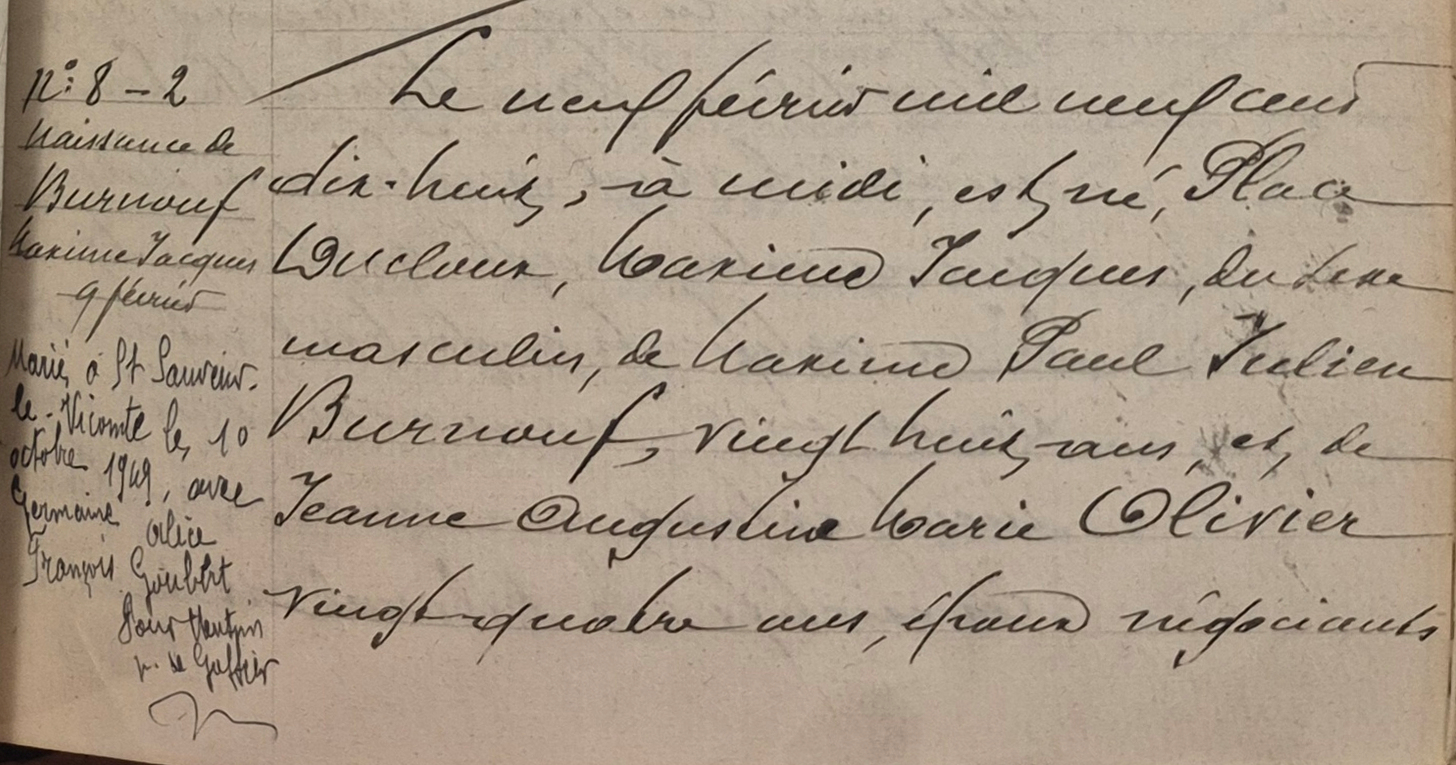 n°: 8 - 2
Naissance de
Burnouf
Maxime Jacques
9 février
Marié à St Sauveur-
le-Vicomte le 10
octobre 1949, avec
Germaine Alice
François Goubert
Pour Mention
p. le Greffier
Le neuf février mil neuf cent
dix-huit, à midi, est né, Place
Maxime Jacques, du sexe
masculin, de Maxime Paul Julien
Burnouf, vingt huit ans, et, de
Jeanne Augustine Marie Olivier
vingt-quatre ans, époux négociants